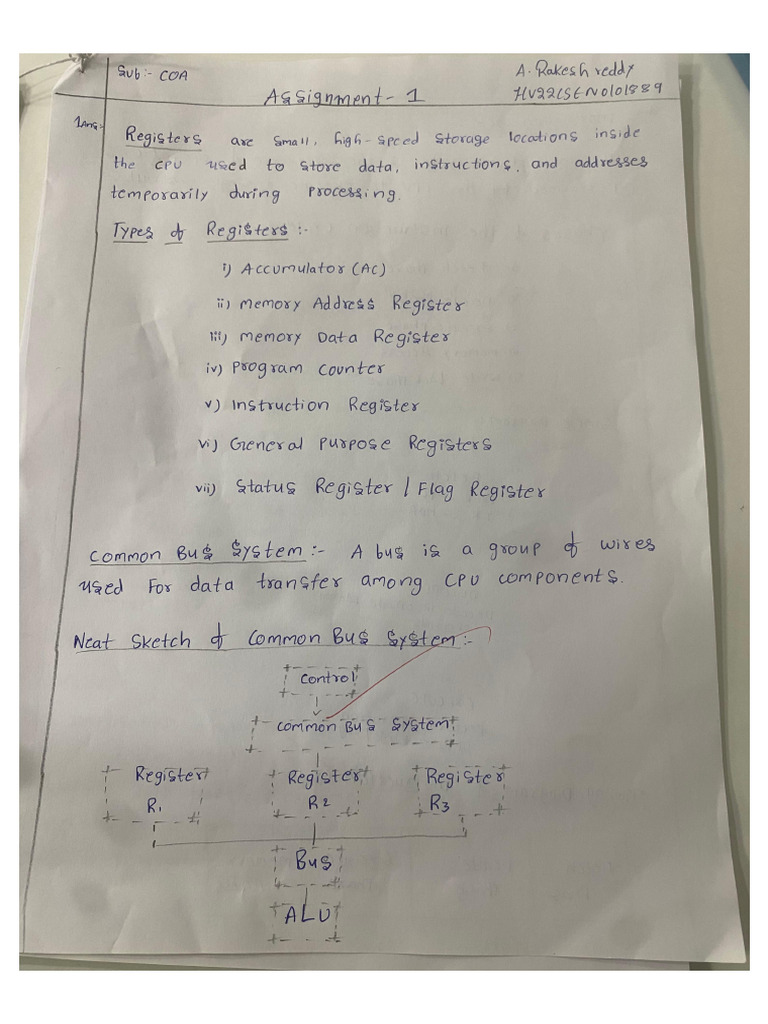 Sub:- COA
A. Rakesh reddy
HV22CSEN0101889
Assignment- 1
1Ans:-
Registers are small, high-speed storage locations inside
the CPU used to store data, instructions, and addresses
temporarily during processing.
Types of Registers :-
i) Accumulator (AC)
ii) Memory Address Register
iii) Memory Data Register
iv) Program Counter
v) Instruction Register
vi) General Purpose Registers
vii) Status Register / Flag Register
Common Bus System :- A bus is a group of wires
used For data transfer among CPU components.
Neat Sketch of Common Bus System:-
Control
Common Bus System
Register Register Register
R1 R2 R3
Bus
ALU